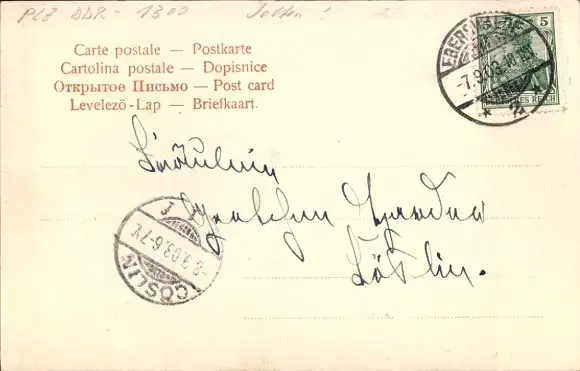 PLZ DDR - 1300 Selten!
Carte postale — Postkarte
Cartolina postale — Dopisnice
Открытое Письмо — Post card
Levelező-Lap — Briefkaart.
5
EBERSWALDE
-7.9.03.
DEUTSCHES REICH
Fräulein
Cöslin.
CÖSLIN
-8.9.03.6-7V.